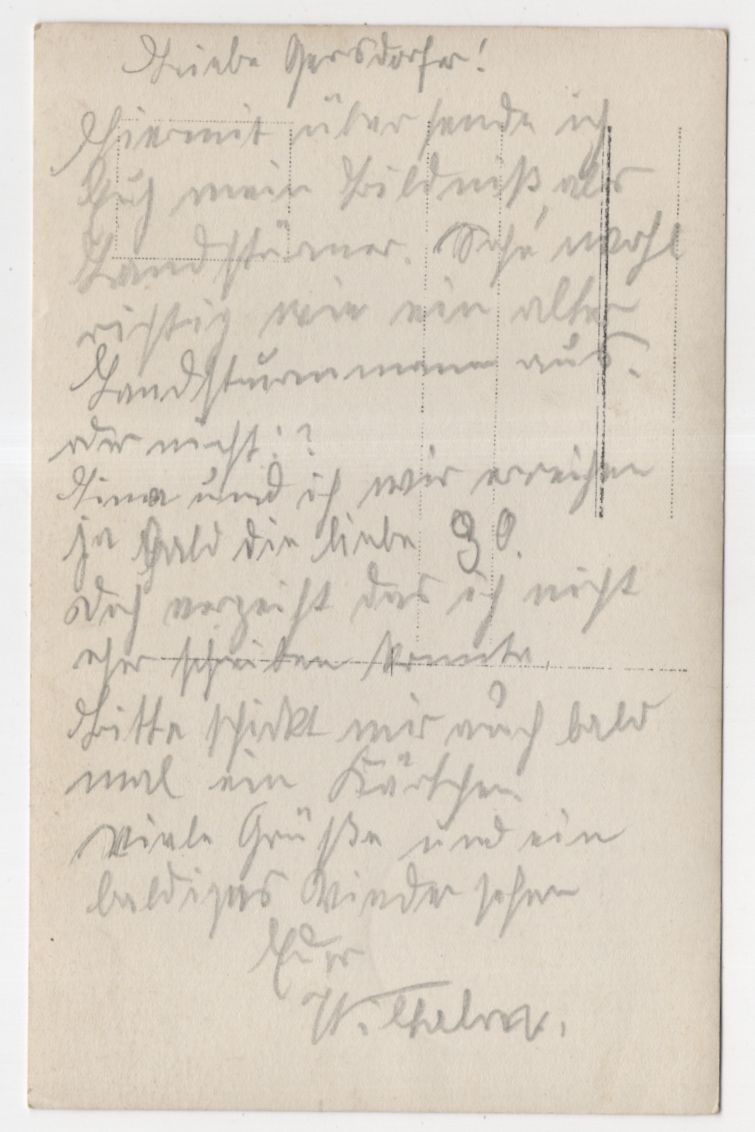 Liebe Gersdorfer!
Hiermit übersende ich
Euch mein Bildniß als
Landstürmer. Sehe wohl
richtig wie ein alter
Landsturmmann aus.
oder nicht:?
und ich wir erreichen
ja bald die liebe 30.
Doch verzeiht das ich nicht
eher schreiben konnte.
Bitte schickt mir auch bald
mal ein Kärtchen
Viele Grüße und ein
baldiges Wiedersehen
Euer